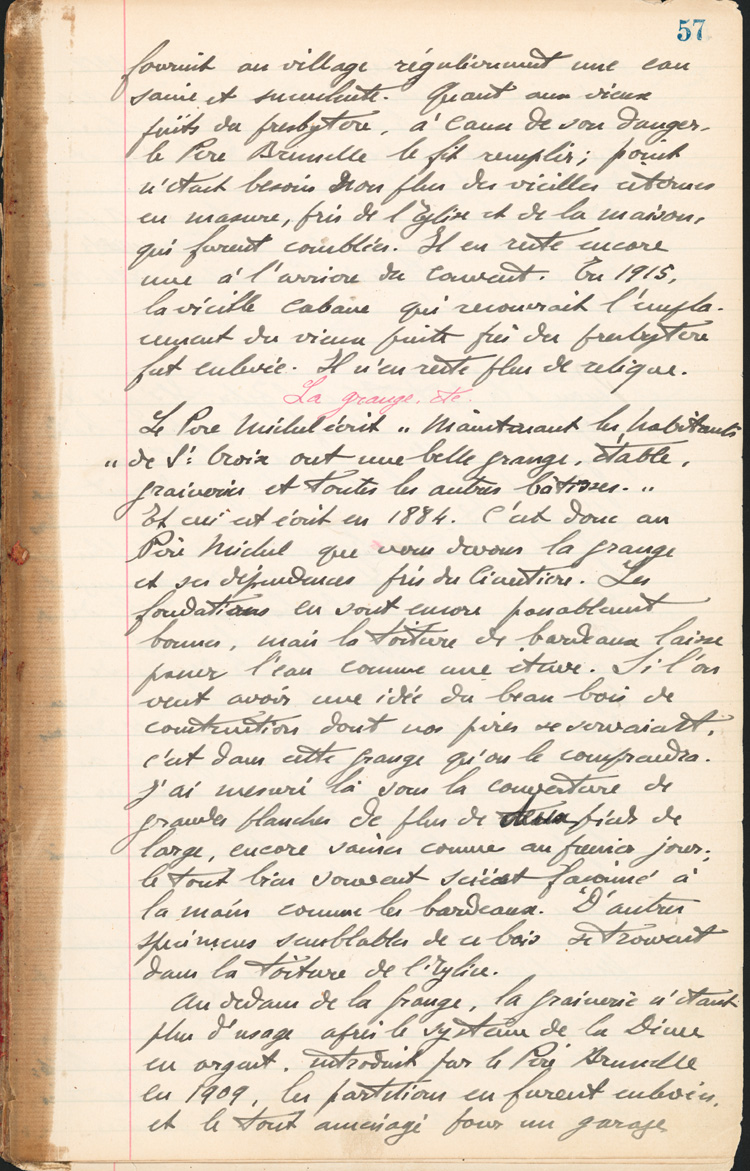 57
fournit au village régulièrement une eau
saine et succulente. Quant aux vieux
puits du presbytère, à cause de son danger,
le Père Brunelle le fit remplir; point
n'était besoin non plus des vieilles citernes
en masure, près de l'Eglise et de la maison,
qui furent comblées. Il en reste encore
une à l'arrière du couvent. En 1915,
la vieille cabane qui recouvrait l'empla-
cement du vieux puits près du presbytère
fut enlevée. Il n'en reste plus de relique.
La grange. etc.
Le Père Michel écrit „ Maintenant les habitants
„ de St: Croix ont une belle grange, étable,
graineries et toutes les autres bâtisses. „
Et ceci est écrit en 1884. C'est donc au
Père Michel que nous devons la grange
et ses dépendences près du cimetière. Les
fondations en sont encore passablement
bonnes, mais la toiture de bardeaux laisse
passer l'eau comme une . Si l'on
veut avoir une idée du beau bois de
construction dont nos pères se servaient,
c'est dans cette grange qu'on le comprendra.
J'ai mesuré là sous la couverture de
grandes planches de plus de pieds de
large, encore saines comme au premier jour;
le tout bien souvent scié et façonné à
la main comme les bardeaux. D'autres
spécimens semblables de ce bois se trouvent
dans la toiture de l'Eglise.
Au dedans de la grange, la grainerie n'étant
plus d'usage après le système de la Dime
en argent, introduit par le Père Brunelle
en 1909, les partitions en furent enlevées,
et le tout aménagé pour un garage